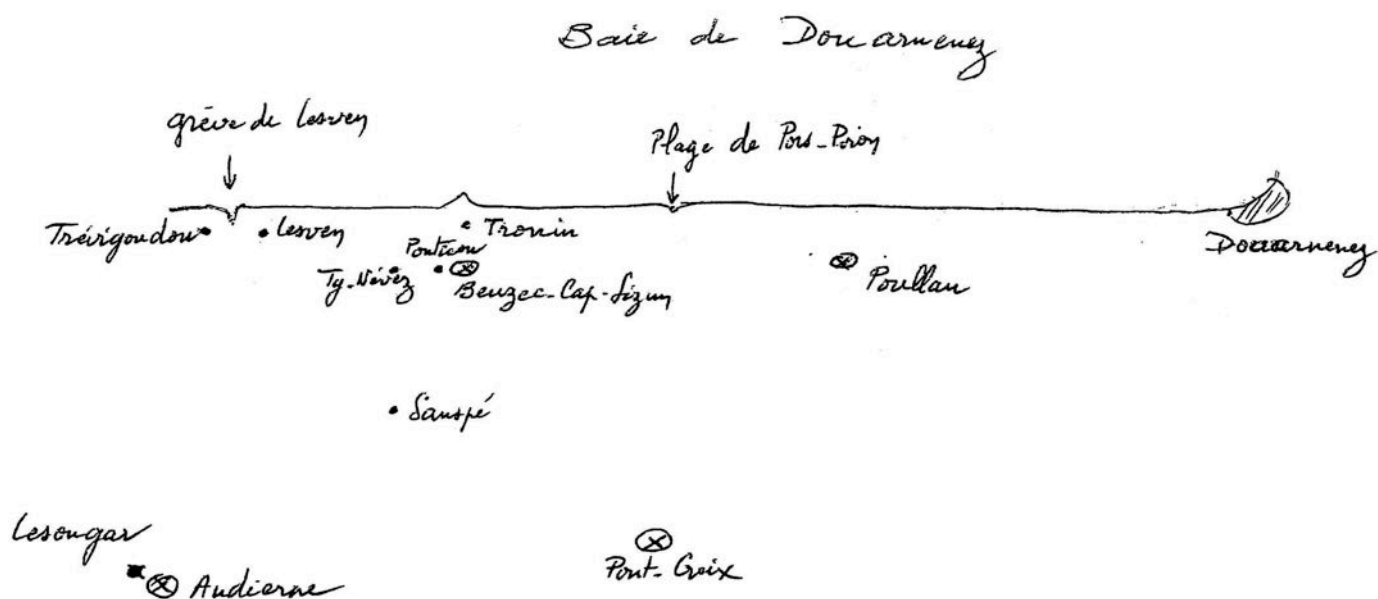 Baie de Douarnenez
grève de Lesven
Plage de Pors-Piron
Trévigoudou
Lesven
Tronin
Ponticou
Ty-Névez
Beuzec-Cap-Sizun
Poullan
Douarnenez
Sauspé
Lesongar
Audierne
Pont-Croix